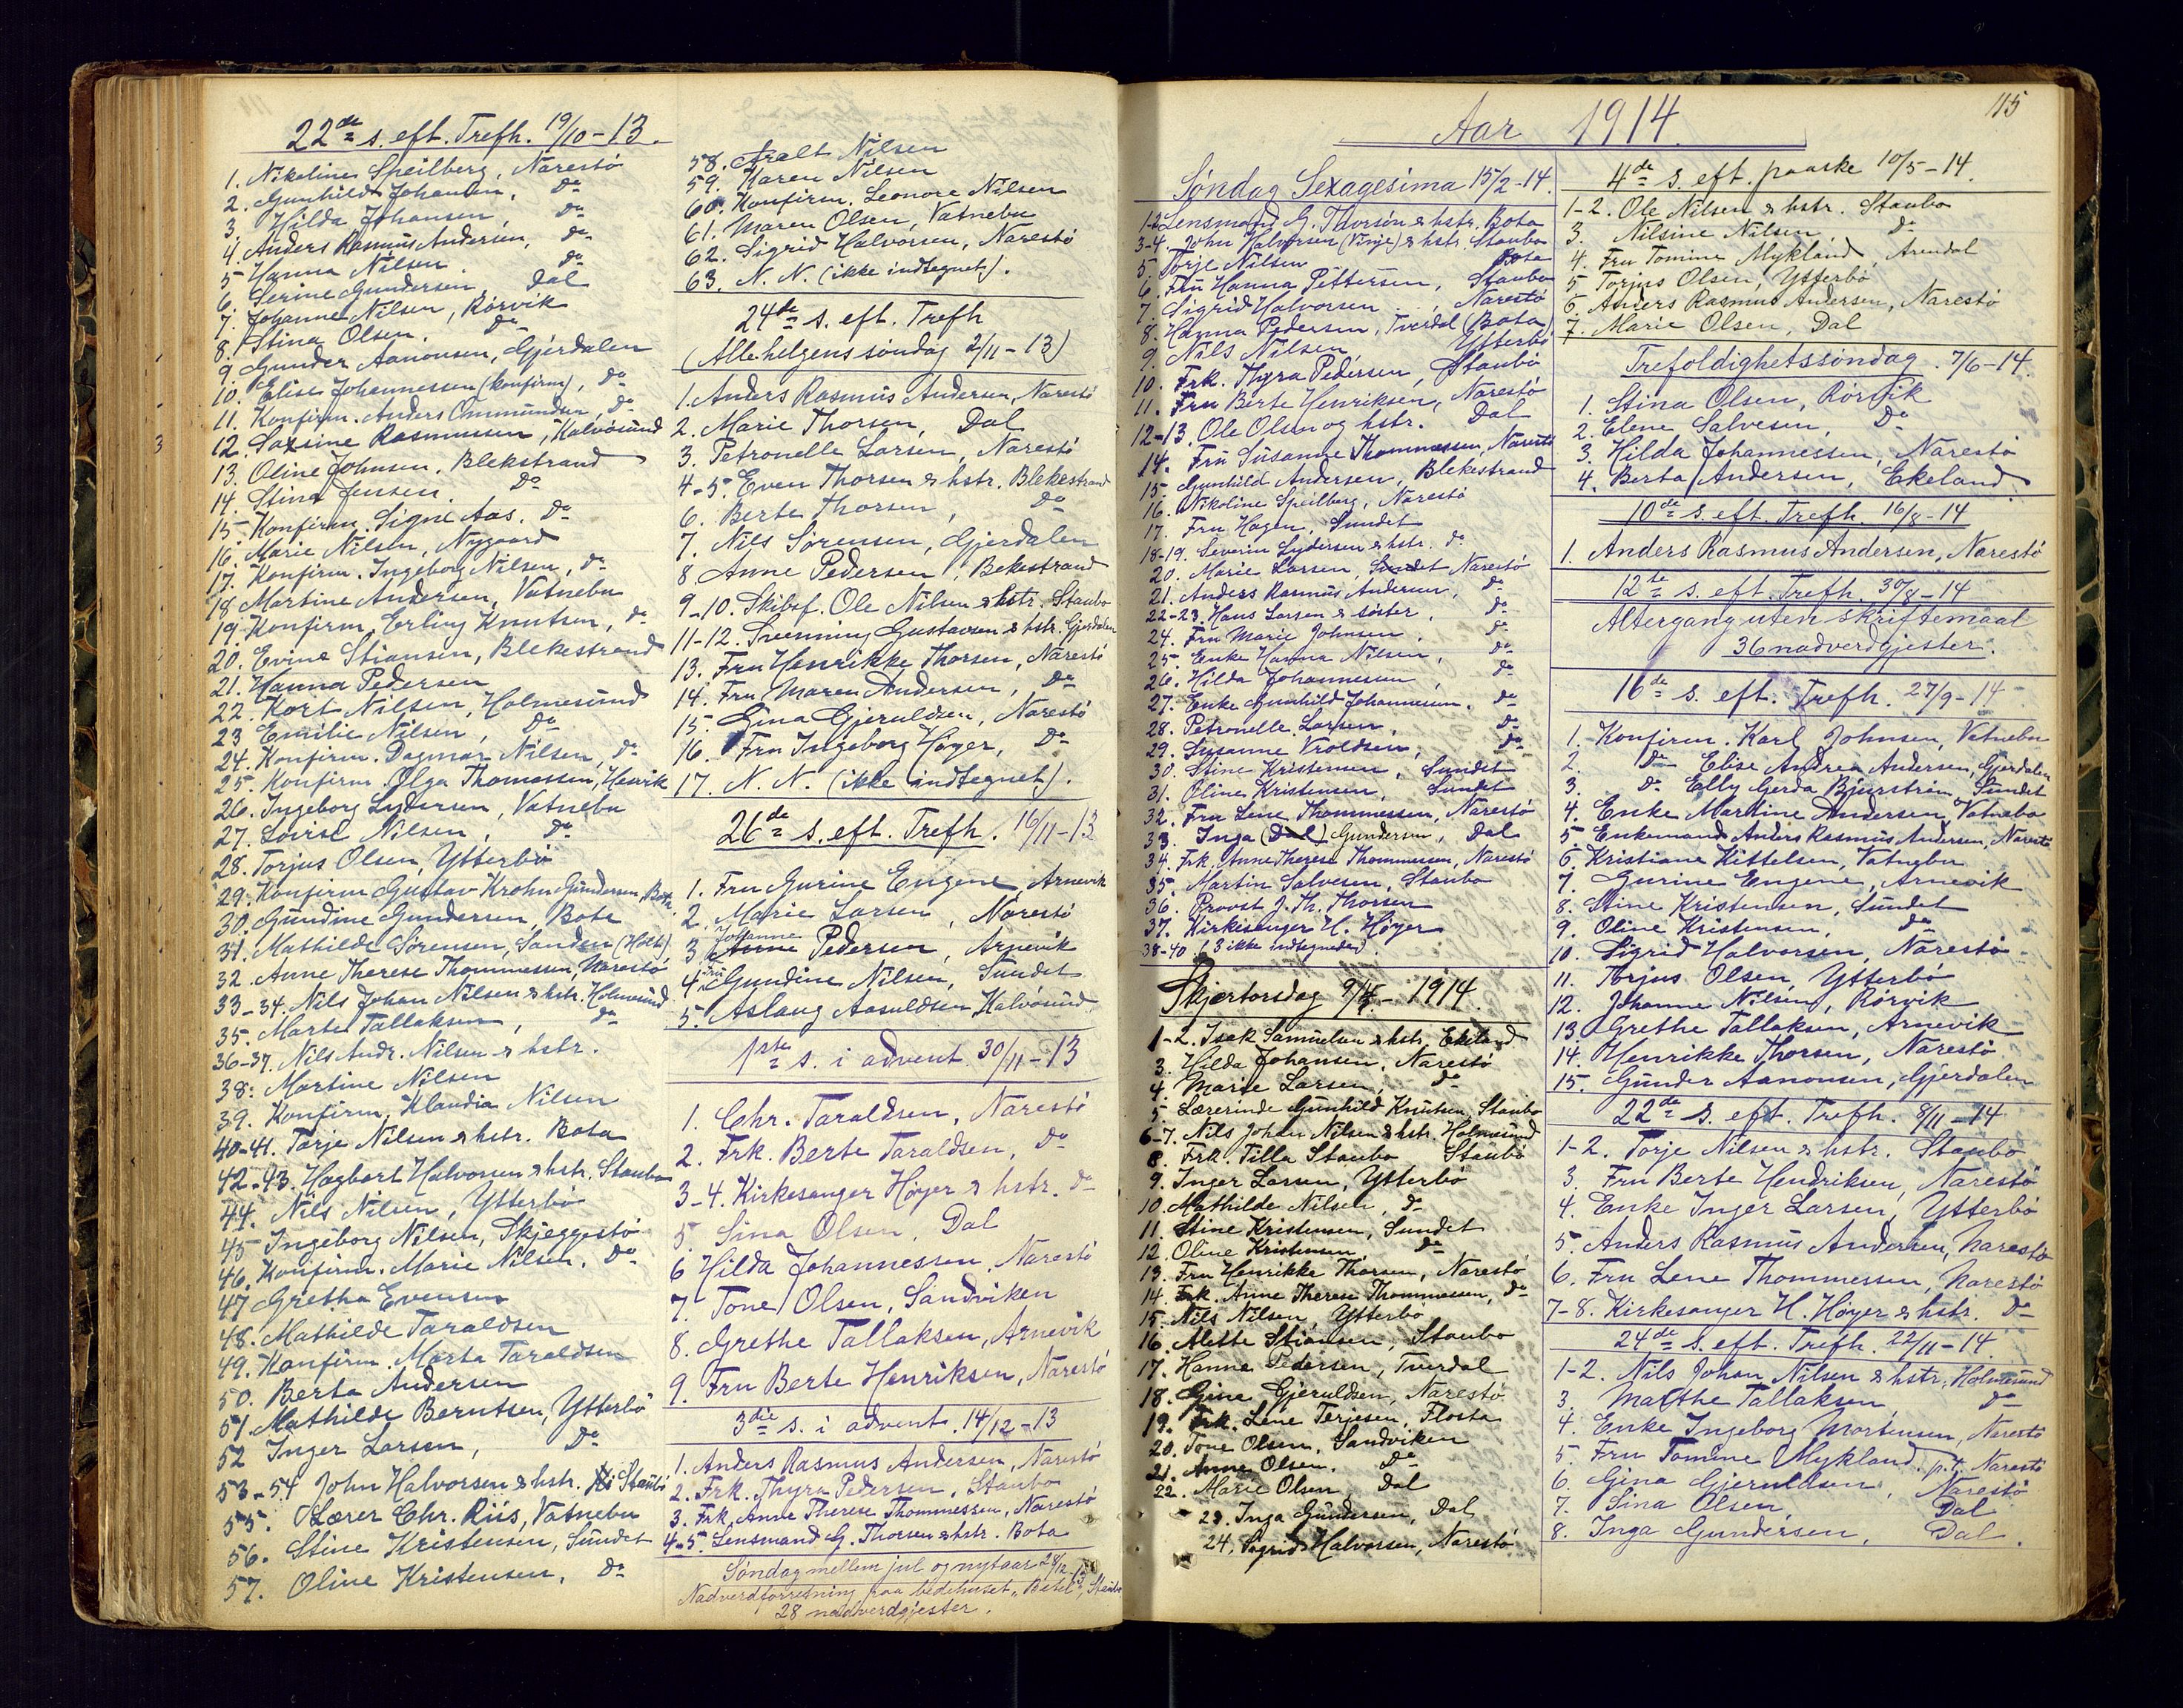 22de s. eft. Trefh. 19/10-13.
1. Nikoline Speilberg, Narestö
2. Gunhild Johansen, Do
3. Hilda Johansen, Do
4. Anders Rasmus Andersen, Do
5 Hanna Nilsen. Do
6. Serine Gundersen, Dal
7. Johanne Nilsen, Rörvik
8. Stina Olsen. Do
9 Gunder Aanonsen, Gjerdalen
10. Elise Johannessen (konfirm), Do
11. Konfirm. Anders Ommundsen, Do
12. Saxine Rasmussen, Kalvösund
13. Oline Johnsen, Blekstrand
14. Stina Jensen. Do
15. Konfirm. Signe Aas. Do
16. Marie Nilsen, Nygaard
17. Konfirm. Ingeborg Nilsen, Do
18 Martine Andersen, Vatnebu
19. Konfirm. Erling Knutsen, Do
20. Evine Stiansen, Blekestrand
21. Hanna Pedersen
22. Kort Nilsen, Holmesund
23 Emilie Nilsen, Do
24. Konfirm. Dagmar Nilsen, Do
25. Konfirm. Olga Thomassen, Hesvik
26. Ingeborg Lydersen, Vatnebu
27. Lovise Nilsen, Do
28. Torjus Olsen, Ytterbö
29. Konfirm Gustav Krohn Gundersen, Bota
30. Gundine Gundersen, Bota
31. Mathilde Sörensen, Sanden (Holt)
32. Anne Therese Thommessen, Narestö
33-34. Nils Johan Nilsen & hstr. Holmesund
35. Marte Tallaksen, Do
36-37. Nils Andr. Nilsen & hstr.
38. Martine Nilsen
39. Konfirm. Klaudia Nilsen
40-41. Torje Nilsen & hstr. Bota
42-43. Hagbart Halvorsen & hstr. Staubo
44. Nils Nilsen, Ytterbö
45 Ingeborg Nilsen, Skjeggestö
46. Konfirm. Marie Nilsen. Do
47 Gretha Evensen
48. Mathilde Taraldsen
49. Konfirm. Marta Taraldsen
50. Berta Andersen
51 Mathilde Berntsen, Ytterbö
52 Inger Larsen, Do
53-54 John Halvorsen & hstr. Staubö
55. Lærer Chr. Riis, Vatnebu
56. Stine Kristensen, Sundet
57. Oline Kristensen, Do
58. Aralt Nilsen
59. Karen Nilsen
60. Konfirm. Leonore Nilsen
61. Maren Olsen, Vatnebu
62. Sigrid Halvorsen, Narestö
63. N. N. (ikke indtegnet).
24de s. eft. Trefh
(Allehelgens söndag 2/11-13)
1. Anders Rasmus Andersen, Narestö
2. Marie Thorsen, Dal
3. Petronelle Larsen, Narestö
4-5. Even Thorsen & hstr. Blekestrand
6. Berte Thorsen, Do
7. Nils Sörensen, Gjerdalen
8. Anne Pedersen, Bekestrand
9-10. Skibsf. Ole Nilsen & hstr. Staubo
11-12. Svenning Gustavsen & hstr. Gjerdalen
13. Fru Henrikke Thorsen, Narestö
14. Fru Maren Andersen, Do
15. Gina Gjeruldsen, Narestö
16. Fru Ingeborg Höyer, Do
17. N. N. (ikke indtegnet).
26de s. eft. Trefh. 16/11-13
1. Fru Gurine Engene, Arnevik
2. Marie Larsen, Narestö
3 Johanne Pedersen, Arnevik
4 Fru Gundine Nilsen, Sundet
5. Aslaug Aasuldsen, Kalvösund
1ste s. i advent 30/11-13
1. Chr. Taraldsen, Narestö
2. Frk. Berte Taraldsen, Do
3-4. Kirkesanger Höyer & hstr. Do
5. Sina Olsen, Dal
6 Hilda Johannessen, Narestö
7. Tone Olsen, Sandviken
8. Grethe Tallaksen, Arnevik
9. Fru Berte Henriksen, Narestö
3die s. i advent. 14/12-13
1. Anders Rasmus Andersen, Narestö
2. Frk. Thyra Pedersen, Staubo
3. Frk. Anne Therese Thommessen, Narestö
4-5. Lensmand G. Thorsen & hstr. Bota
Söndag mellem jul og nytaar 28/12-13
Nadverdforretning paa bedehuset „Betel", Staubo
28 nadverdgjester.
115
Aar 1914.
Söndag Sexagesima 15/2-14.
1-2 Lensmand G. Thorsön & hstr. Bota
3-4. John Halvorsen (Vinje) & hstr. Staubo
5. Torje Nilsen Bota
6. Fru Hanna Pettersen, Staubo
7. Sigrid Halvorsen, Narestö
8. Hanna Pedersen, Tverdal (Bota)
9. Nils Nilsen Ytterbö
10. Frk. Thyra Pedersen, Staubö
11. Fru Berte Henriksen, Narestö
12-13. Ole Olsen og hstr. Dal
14. Fru Susanne Thommessen, Narestö
15. Gunhild Andersen, Blekestrand
16. Nikoline Speilberg, Narestö
17. Fru Hagen, Sundet
18-19. Severin Lydersen & hstr. Do
20. Marie Larsen, Sundet Narestö
21. Anders Rasmus Andersen, Do
22-23. Hans Larsen & söster, Do
24. Fru Marie Johnsen, Do
25. Enke Hanna Nilsen, Do
26. Hilda Johannessen, Do
27. Enke Gunhild Johannessen. Do
28. Petronelle Larsen, Do
29. Susanne Vroldsen, Do
30. Stine Kristensen, Sundet
31. Oline Kristensen, Sundet
32. Fru Lene Thommessen, Narestö
33. Inga (Dal) Gundersen, Dal
34. Frk. Anne Therese Thommessen, Narestö
35. Martin Salvesen, Staubo
36. Provst J. Th. Thorsen
37. Kirkesanger H. Höyer
38-40 (3 ikke indtegnede)
Skjærtorsdag 9/4-1914
1-2. Isak Samuelsen & hstr. Ekeland
3. Hilda Johansen, Narestö
4. Marie Larsen, Do
5. Lærerinde Gunhild Knutsen, Staubo
6-7. Nils Johan Nilsen & hstr. Holmesund
8. Frk. Tilla Staubo Staubö
9. Inger Larsen, Ytterbö
10. Mathilde Nilsen, Do
11. Stine Kristensen, Sundet
12. Oline Kristensen, Do
13. Fru Henrikke Thorsen, Narestö
14. Frk. Anne Therese Thommessen, Do
15. Nils Nilsen, Ytterbö
16. Alette Stiansen, Staubo
17. Hanna Pedersen, Tverdal
18. Gine Gjeruldsen, Narestö
19. Frk. Lene Terjesen, Flosta
20. Tone Olsen, Sandviken
21. Anna Olsen. Do
22. Marie Olsen, Dal
23. Inga Gundersen, Dal
24. Sigrid Halvorsen, Narestö
4de s. eft. paaske 10/5-14.
1-2. Ole Nilsen & hstr. Staubo
3. Nilsine Nilsen Do
4. Fru Tomine Mykland, Arendal
5 Torjus Olsen, Ytterbö
6. Anders Rasmus Andersen, Narestö
7. Marie Olsen, Dal
Trefoldighetssöndag. 7/6-14.
1. Stina Olsen, Rörvik
2. Elene Salvesen, Do
3. Hilda Johannessen, Narestö
4. Berta Andersen, Ekeland
10de s. eft. Trefh. 16/8-14
1. Anders Rasmus Andersen, Narestö
12te s. eft. Trefh. 30/8-14
Altergang uten skriftemaal
36 nadverdgjester.
16de s. eft. Trefh. 27/9-14
1. Konfirm. Karl Johnsen, Vatnebu
2. Do Elise Andrea Andersen, Gjerdalen
3. Do Elly Gerda Bjurström, Sundet
4. Enke Martine Andersen, Vatnebo
5 Enkemand Anders Rasmus Andersen, Narestö
6. Kristiane Kittelsen, Vatnebu
7. Gurine Engene, Arnevik
8. Stine Kristensen, Sundet
9. Oline Kristensen, Do
10. Sigrid Halvorsen, Narestö
11. Torjus Olsen, Ytterbö
12. Johanne Nilsen, Rörvik
13. Grethe Tallaksen, Arnevik
14. Henrikke Thorsen, Narestö
15. Gunder Aanonsen, Gjerdalen
22de s. eft. Trefh. 8/11-14
1-2. Torje Nilsen & hstr. Staubo
3. Fru Berte Hendriksen, Narestö
4. Enke Inger Larsen, Ytterbö
5. Anders Rasmus Andersen, Narestö
6. Fru Lene Thommessen, Narestö
7-8. Kirkesanger H. Höyer & hstr. Do
24de s. eft. Trefh. 22/11-14.
1-2. Nils Johan Nilsen & hstr, Holmesund
3. Marthe Tallaksen, Do
4. Enke Ingeborg Mortensen, Narestö
5. Fru Tomine Mykland. p.t. Narestö
6. Gina Gjeruldsen, Narestö
7. Sina Olsen, Dal
8. Inga Gundersen, Dal.